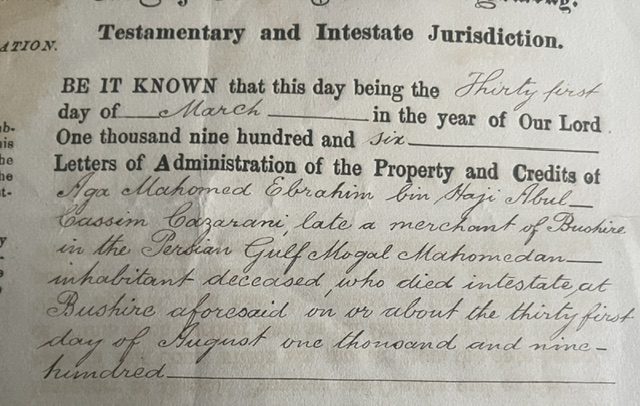 Testamentary and Intestate Jurisdiction.
ATION.
BE IT KNOWN that this day being the Thirty first
day of March in the year of Our Lord
One thousand nine hundred and six
Letters of Administration of the Property and Credits of
Aga Mahomed Ebrahim bin Haji Abul
Cassim Cazarani, late a merchant of Bushire
in the Persian Gulf Mogal Mahomedan
inhabitant deceased, who died intestate at
Bushire aforesaid on or about the thirty first
day of August one thousand and nine-
hundred